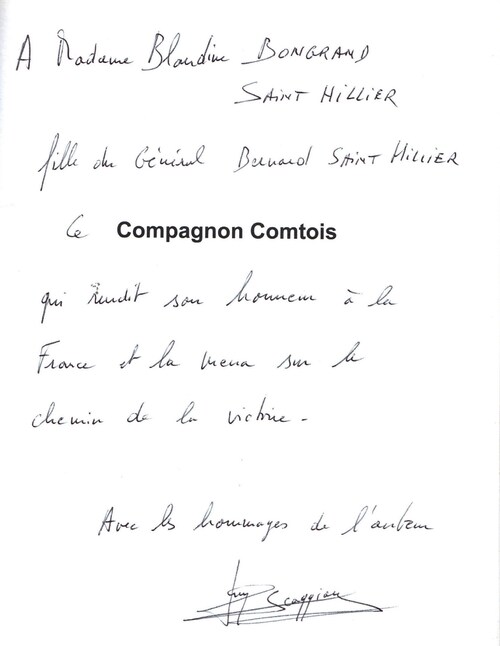 A Madame Blandine BONGRAND
SAINT HILLIER
fille du Général Bernard SAINT HILLIER
Ce Compagnon Comtois
qui rendit son honneur à la
France et la mena sur le
chemin de la victoire.
Avec les hommages de l'auteur
Guy Scaggion